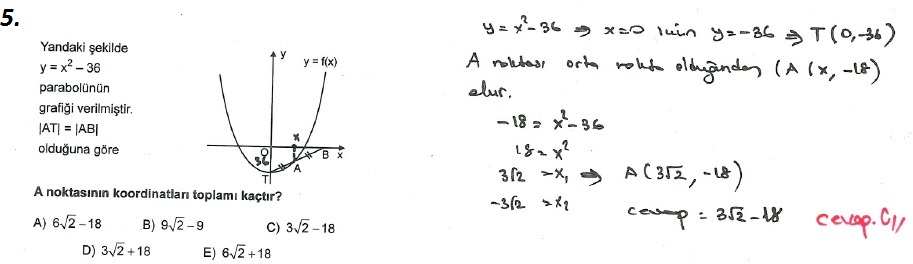 5.
Yandaki şekilde
y = x² – 36
parabolünün
grafiği verilmiştir.
|AT| = |AB|
olduğuna göre
y
y = f(x)
x
O
36
B
x
A
T
A noktasının koordinatları toplamı kaçtır?
A) 6√2 – 18 B) 9√2 – 9 C) 3√2 – 18
D) 3√2 + 18 E) 6√2 + 18
y = x² – 36 ⇒ x=0 için y = –36 ⇒ T(0,–36)
A noktası orta nokta olduğundan (A(x, –18)
olur.
–18 = x² – 36
18 = x²
3√2 = x₁ ⇒ A(3√2, –18)
–3√2 = x₂
cevap = 3√2 – 18 cevap.C//